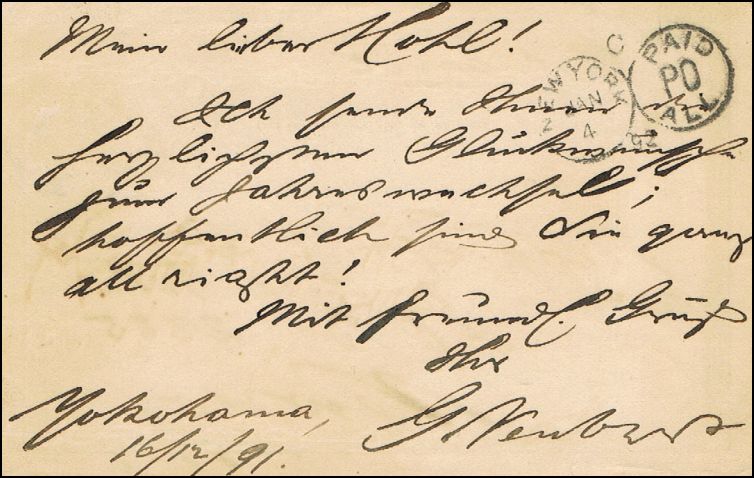 Mein lieber Hohl!
Ich sende Ihnen die
herzlichsten Glückwünsche
zum Jahreswechsel;
hoffentlich sind Sie ganz
all right!
Mit freundl. Gruß
Ihr
G.
Yokohama,
16/12/91.
NEW YORK
JAN
4
92
PAID
PO
ALL